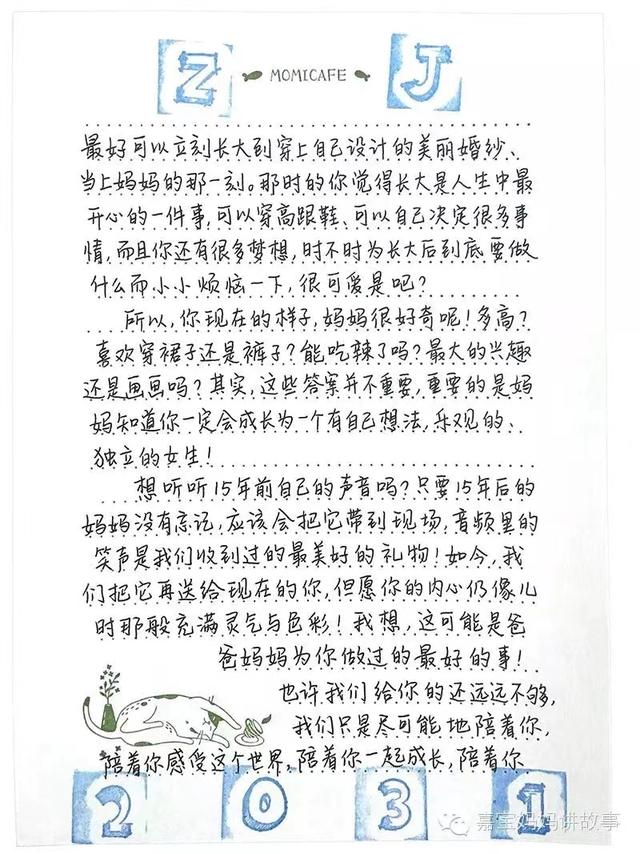 Z J
MOMICAFE
最好可以立刻长大到穿上自己设计的美丽婚纱、
当上妈妈的那一刻。那时的你觉得长大是人生中最
开心的一件事,可以穿高跟鞋、可以自己决定很多事
情,而且你还有很多梦想,时不时为长大后到底要做
什么而小小烦恼一下,很可爱是吧?
所以,你现在的样子,妈妈很好奇呢!多高?
喜欢穿裙子还是裤子?能吃辣了吗?最大的兴趣
还是画画吗?其实,这些答案并不重要,重要的是妈
妈知道你一定会成长为一个有自己想法,乐观的、
独立的女生!
想听听15年前自己的声音吗?只要15年后的
妈妈没有忘记,应该会把它带到现场,音频里的
笑声是我们收到过的最美好的礼物!如今,我
们把它再送给现在的你,但愿你的内心仍像儿
时那般充满灵气与色彩!我想,这可能是爸
爸妈妈为你做过的最好的事!
也许我们给你的还远远不够,
我们只是尽可能地陪着你,
陪着你感受这个世界,陪着你一起成长,陪着你
2031
嘉宝妈妈讲故事